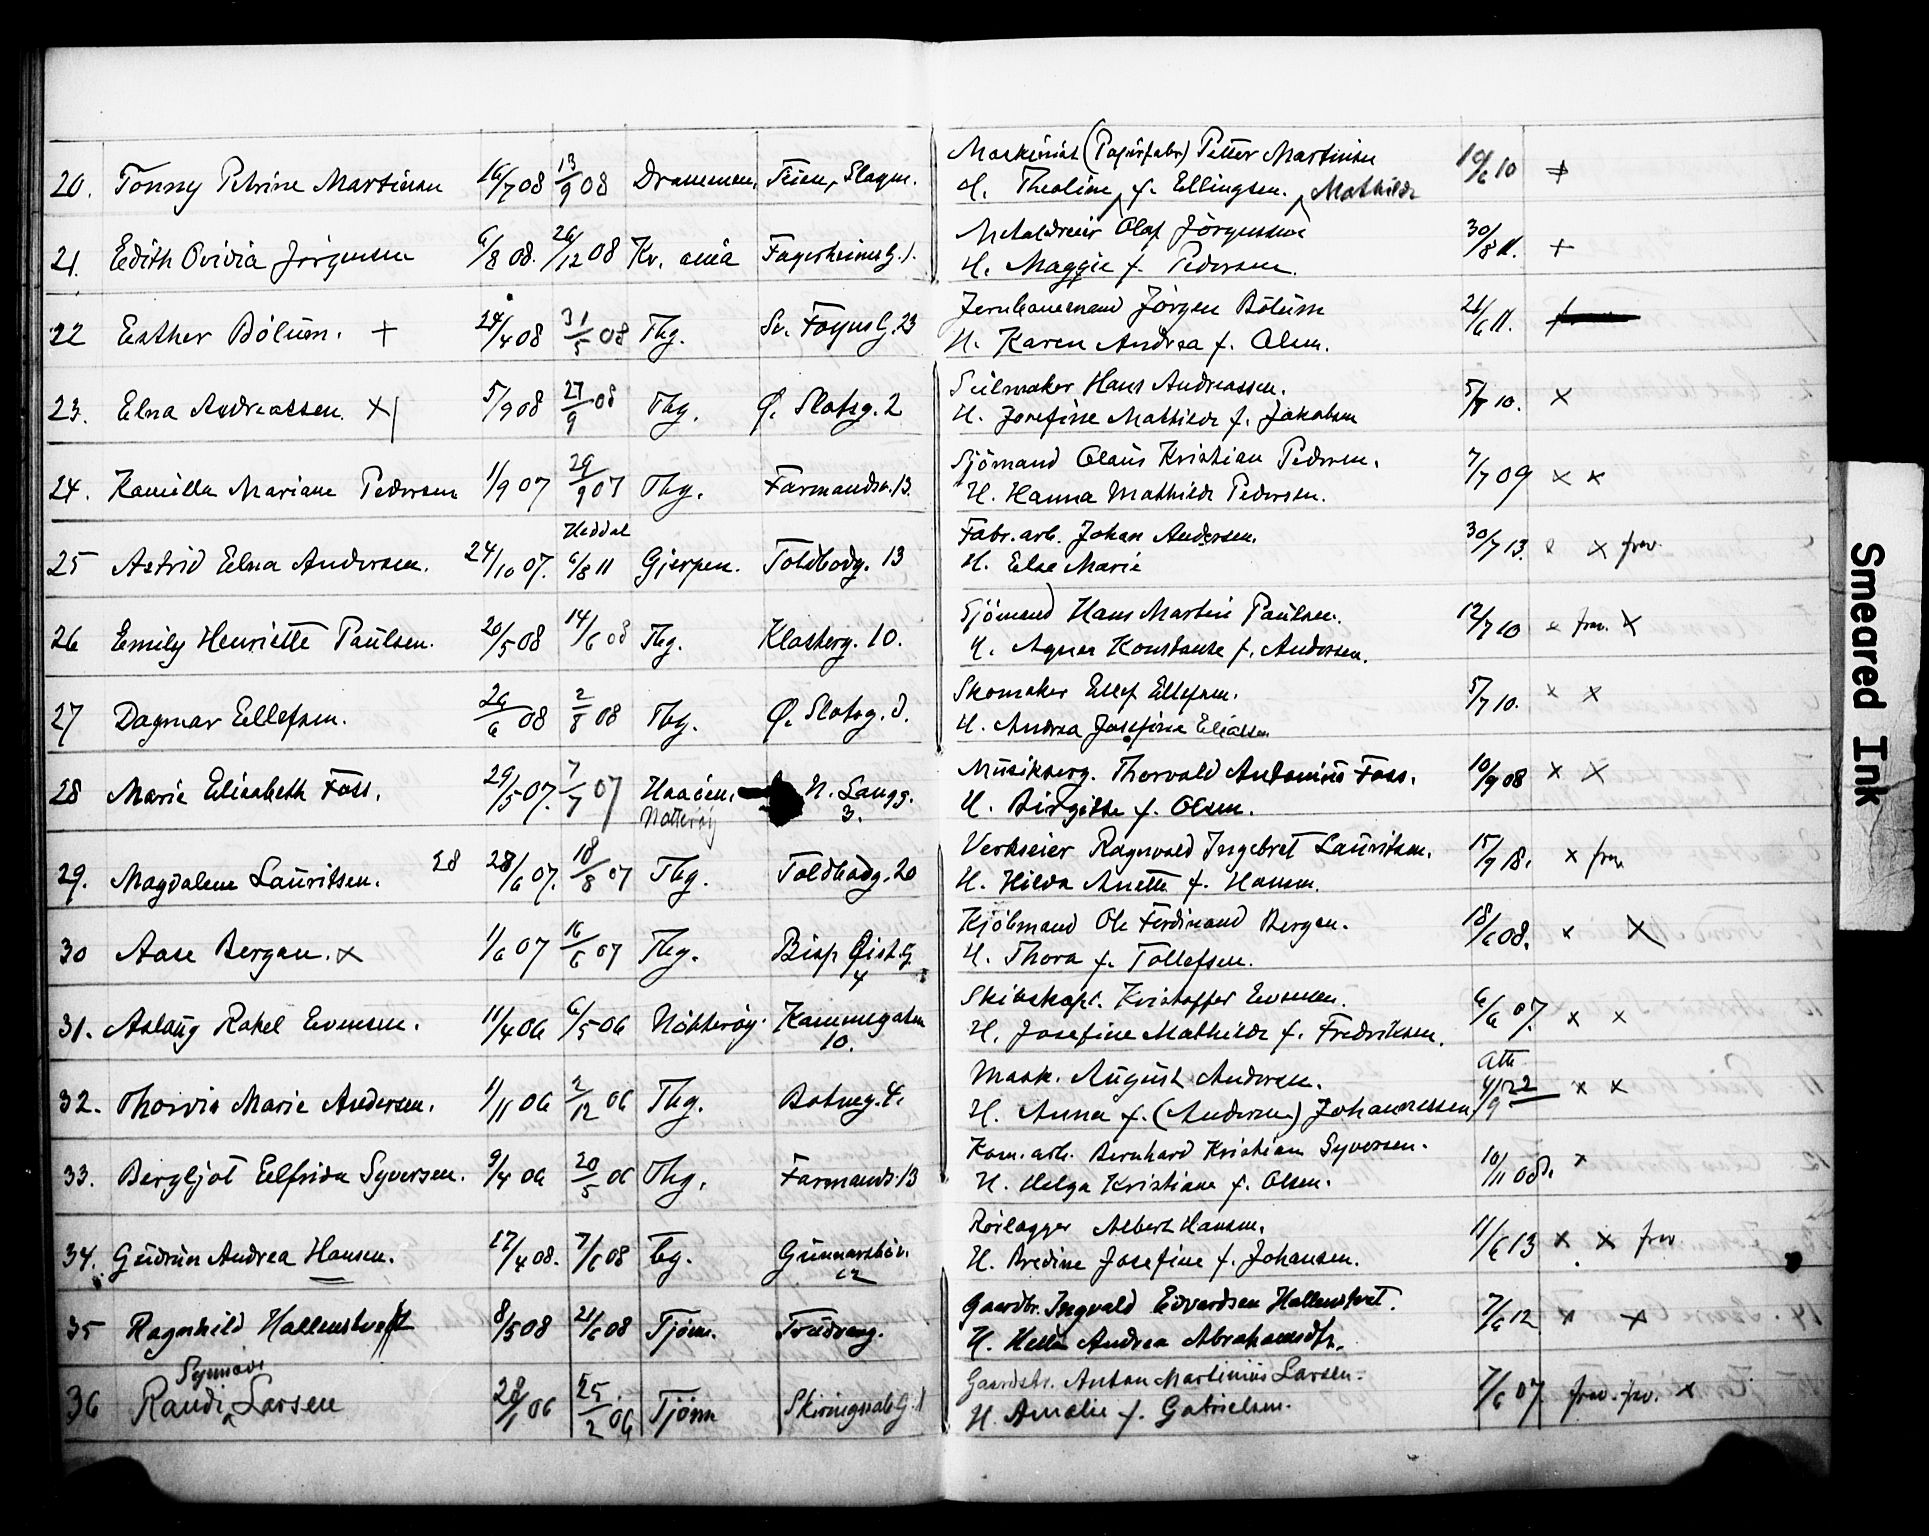 20. Tonny Petrine Martinsen 16/7 08 13/9 08 Drammen. Teien, Slagen. Maskinist (Papirfabr) Petter Martinsen 19/6 10 +
H. Theoline, f. Ellingsen. Mathilde
21. Edith Ovidia Jörgensen 6/8 08. 26/12 08 Kv. Fagerheimsg. 1. Metaldreier Olaf Jörgensen 30/8 11. +
H. Maggie f. Pedersen.
22 Esther Bölum. + 24/4 08 31/5 08 Tbg. Sv. Foynsg. 23 Jernbanemand Jörgen Bölum 21/6 11.
H. Karen Andrea f. Olsen.
23. Elna Andreassen. x 5/9 08 27/9 08 Tbg. Ø. Slotsg. 2 Seilmaker Hans Andreassen. 5/8 10. x
H. Josefine Mathilde f. Jakobsen
24. Kamilla Mariane Pedersen 1/9 07 29/9 07 Tbg. Farmandsv. 13. Sjömand Olaus Kristian Pedersen. 7/7 09 x x
H. Hanna Mathilde Pedersen.
Heddal
25 Astrid Elna Andersen. 24/10 07. 6/8 11 Gjerpen. Toldbodg. 13 Fabr. arb. Johan Andersen. 30/7 13. x x frav.
H. Else Marie
26 Emily Henriette Paulsen. 20/5 08 14/6 08 Tbg. Klosterg. 10. Sjömand Hans Martin Paulsen. 12/7 10 x frav. x
H. Agnes Konstanse f. Andersen.
27 Dagmar Ellefsen. 29/6 08 2/8 08 Tbg. Ø. Slotsg. 8. Skomaker Ellef Ellefsen. 5/7 10. x x
H. Andrea Josefine Eliassen
28 Marie Elisabeth Foss. 29/5 07. 7/7 07 Husøen. N. Langg. Musikserg. Thorvald Antonius Foss. 10/9 08 x x
Nötterøy 3. H. Birgitte f. Olsen.
29. Magdalene Lauritsen. 28 28/6 07. 18/8 07 Tbg. Toldbodg. 20 Verkseier Ragnvald Ingebret Lauritsen. 15/9 18. x frav
H. Hilda Anette f. Hansen.
30 Aase Bergan. x 1/6 07 16/6 07 Tbg. Bisp Øistg. Kjöbmand Ole Ferdinand Bergan. 18/6 08. x x
4 H. Thora f. Tollefsen.
31. Aslaug Rakel Evensen. 11/4 06 6/5 06 Nötterøy. Kammegaten Skibskapt. Kristoffer Evensen. 6/6 07. x x
10. H. Josefine Mathilde f. Fredriksen.
Att.
32. Thorvia Marie Andersen. 1/11 06 2/12 06 Tbg. Botneg. 4. Mask. August Andersen. 4/9 22 x x
H. Anna f. (Andersen) Johannessen
33. Bergljot Elfrida Syversen. 9/4 06 20/5 06 Tbg. Farmands. 13 Kom. arb. Bernhard Kristian Syversen. 10/11 08. x
H. Helga Kristiane f. Olsen.
34. Gudrun Andrea Hansen. 17/4 08. 7/6 08 Tbg. Gunnarsböv. Rørlægger Albert Hansen. 11/6 13 x x frav
12 H. Bredine Josefine f. Johansen.
35 Ragnhild Hallenstvet 8/5 08 21/6 08 Tjöm. Trudvang. Gaardbr. Ingvald Edvardsen Hallenstvet. 7/6 12 x x
H. Helle Andrea Abrahamsdtr.
Synnöve
36 Randi Larsen 28/1 06 25/2 06 Tjöm Skiringssalg. 1 Gaardbr. Anton Martinius Larsen. 7/6 07 frav. frav. x
H. Amalie f. Gabrielsen.
Smeared Ink